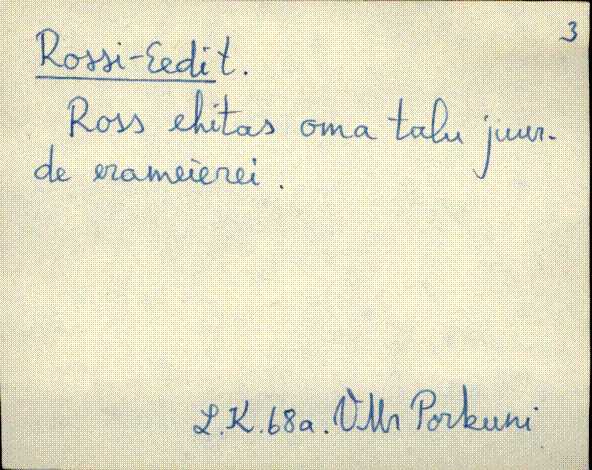 3
Rossi-Eedit.
Ross ehitas oma talu juur-
de erameierei.
L.K. 68a. VMr Porkuni